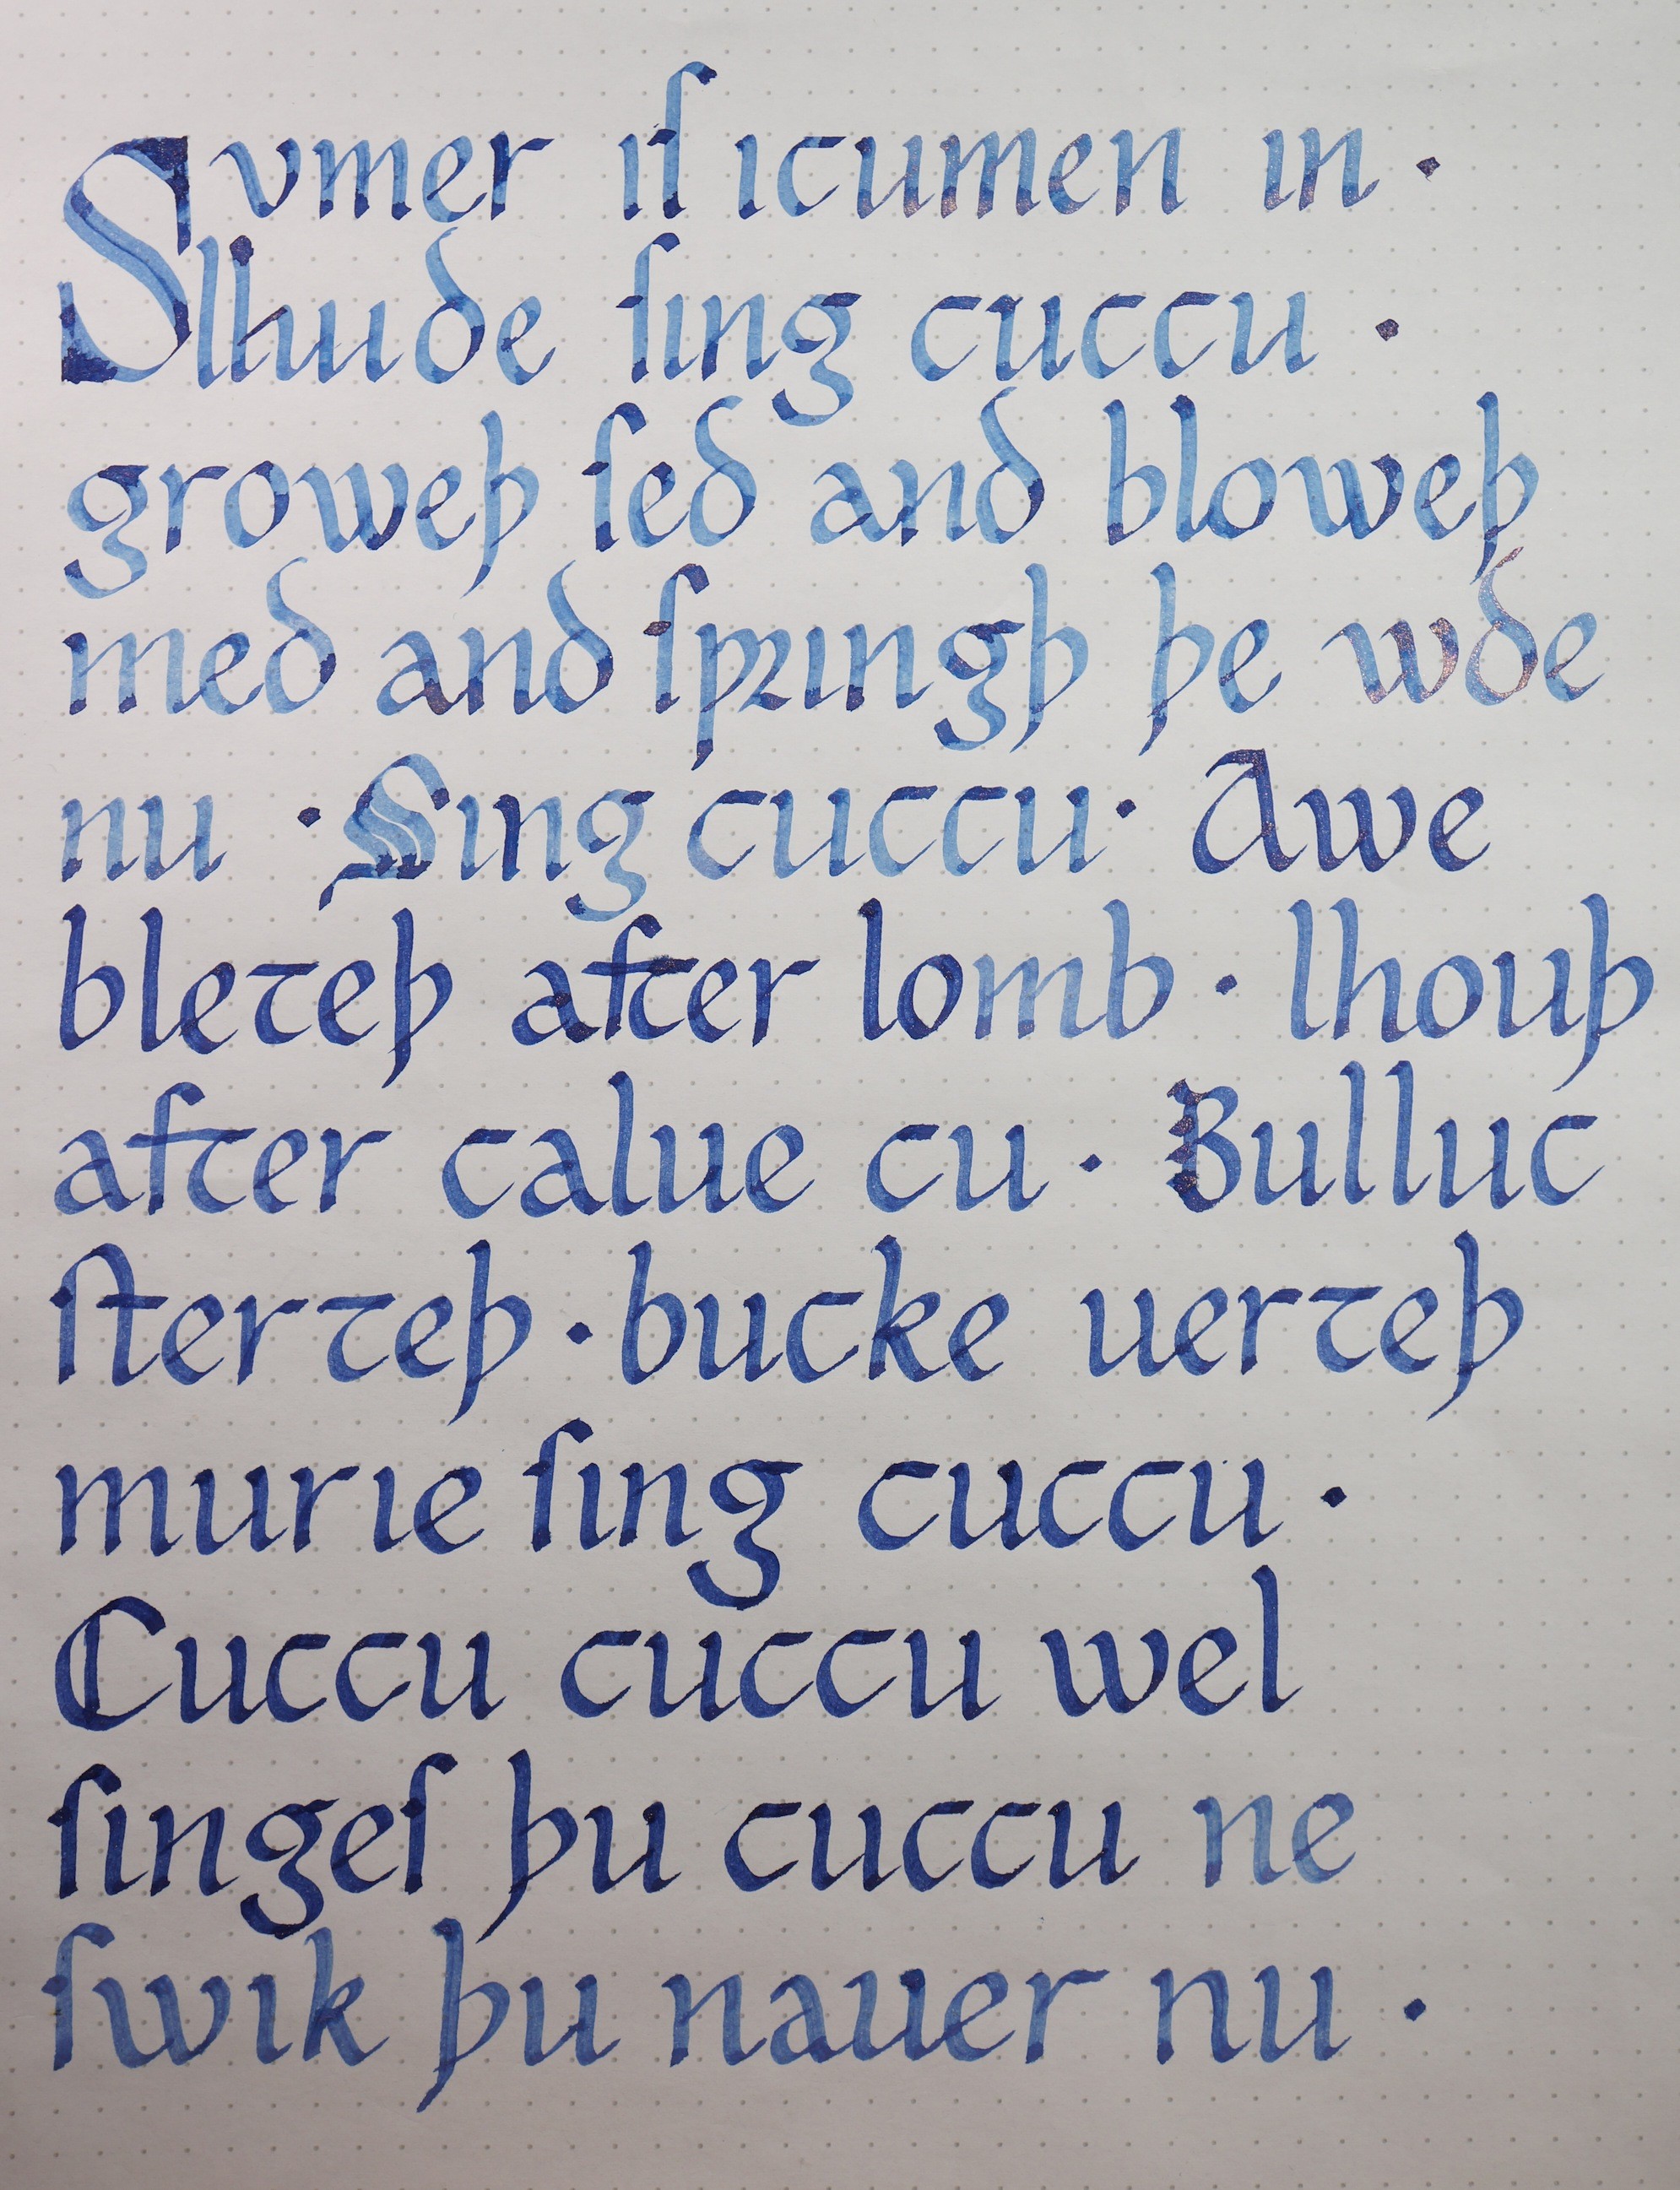 Svmer iſ icumen in ·
lhude ſing cuccu ·
groweþ ſed and bloweþ
med and ſpꝛingþ þe wde
nu · Sing cuccu · Awe
bleteþ after lomb · lhouþ
after calue cu · Bulluc
ſterteþ · bucke uerteþ
murie ſing cuccu ·
Cuccu cuccu wel
ſingeſ þu cuccu ne
ſwik þu nauer nu ·